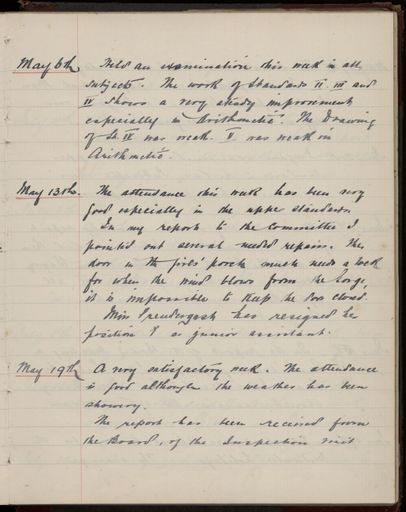 May 6th Held an examination this week in all
subjects. The work of Standards II III and
IV shows a very steady improvement
especially in Arithmetic. The Drawing
of St. IV was weak. V was weak in
Arithmetic.
May 13th. The attendance this week has been very
good especially in the upper standards.
In my report to the Committee I
pointed out several needed repairs. The
door in the girls' porch much needs a lock
for when the wind blows from the
it is impossible to keep the door closed.
Miss Prendergast has resigned her
position as junior assistant.
May 19th A very satisfactory week. The attendance
is good although the weather has been
showery.
The report has been received from
the Board, of the Inspection visit